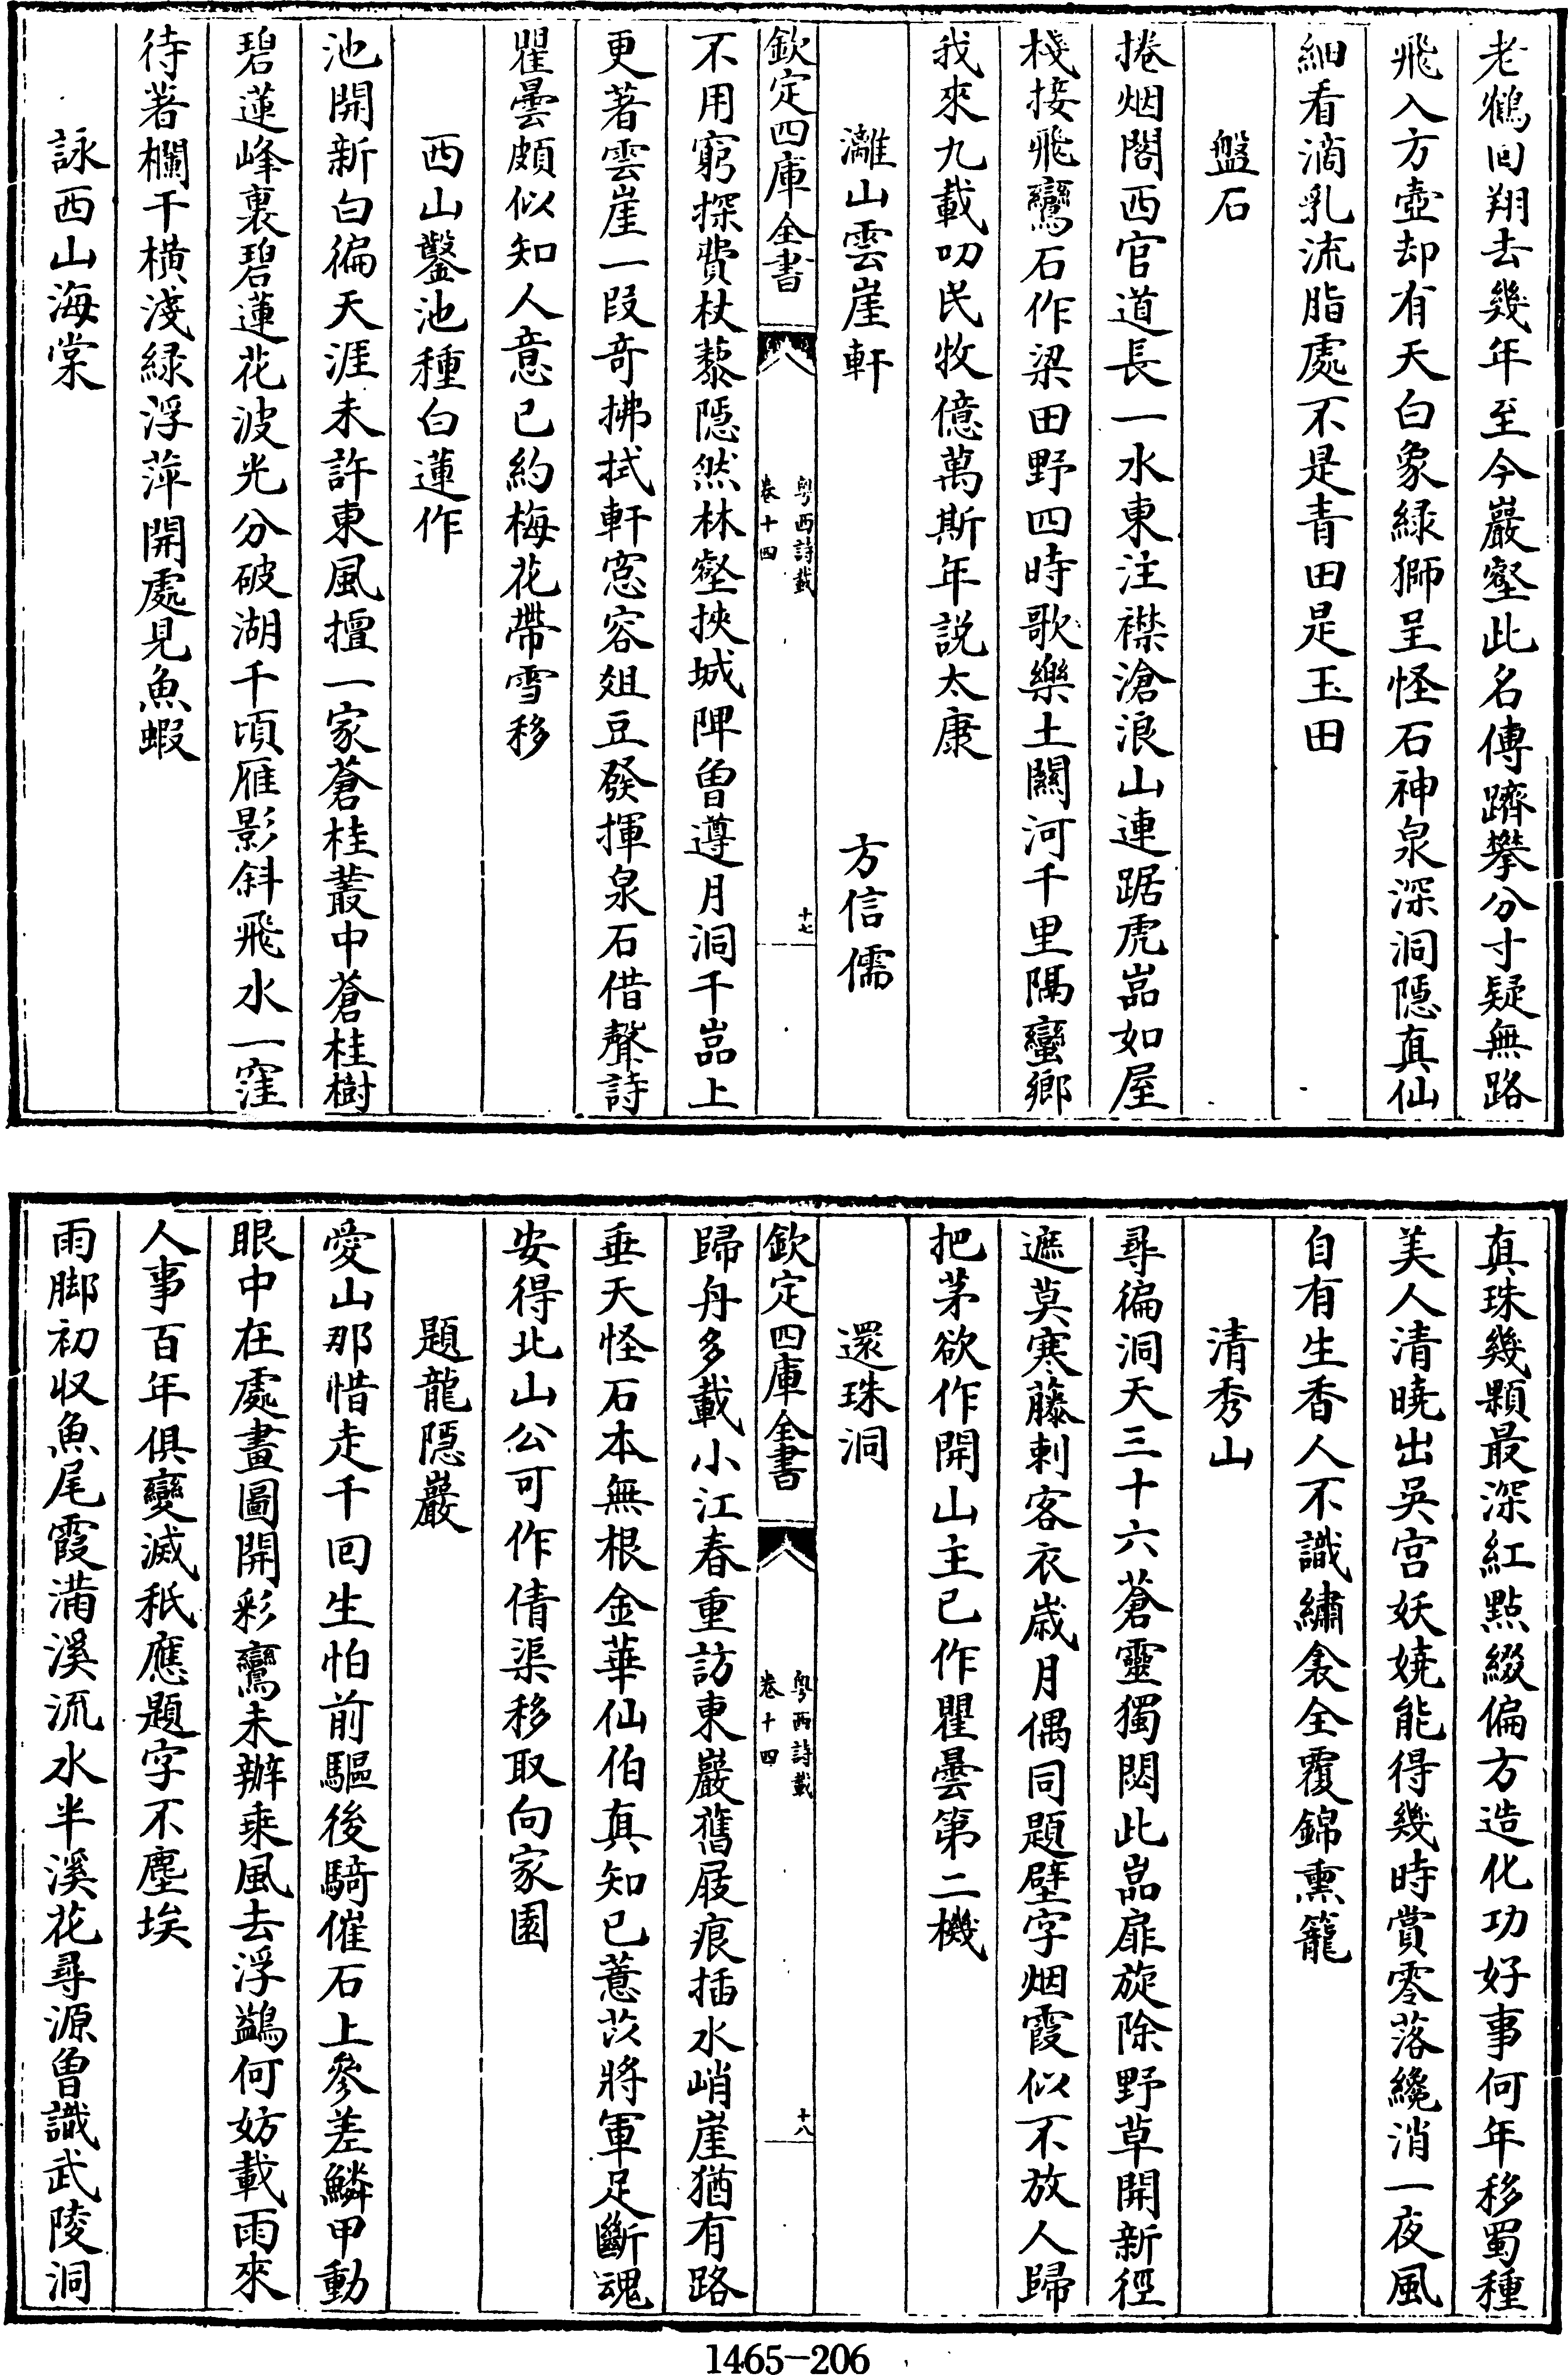 老鶴回翔去幾年至今巖壑此名傳躋攀分寸疑無路
飛入方壺却有天白象緑獅呈怪石神泉深洞隠真仙
細看滴乳流脂處不是青田是玉田
盤石
捲烟閣西官道長一水東注襟滄浪山連踞虎嵓如屋
棧接飛鸞石作梁田野四時歌樂土關河千里隔蠻鄉
我來九載叨民牧億萬斯年說太康
灕山雲崖軒 方信儒
欽定四庫全書 粤西詩載 卷十四 十七
不用窮探費杖藜隠然林壑挾城陴曽遵月洞千嵓上
更著雲崖一段竒拂拭軒窻容俎豆發揮泉石借聲詩
瞿曇頗似知人意已約梅花帶雪移
西山鑿池種白蓮作
池開新白徧天涯未許東風擅一家蒼桂叢中蒼桂樹
碧蓮峰裏碧蓮花波光分破湖千頃雁影斜飛水一窪
待著欄干横淺緑浮萍開處見魚蝦
詠西山海棠
真珠幾顆最深紅點綴偏方造化功好事何年移蜀種
美人清曉出吳宫妖嬈能得幾時賞零落纔消一夜風
自有生香人不識繡衾全覆錦熏籠
清秀山
尋徧洞天三十六蒼靈獨閟此嵓扉旋除野草開新徑
遮莫寒藤刺客衣嵗月偶同題壁字烟霞似不放人歸
把茅欲作開山主已作瞿曇第二機
還珠洞
欽定四庫全書 粤西詩載 卷十四 十八
歸舟多載小江春重訪東巖舊屐痕插水峭崖猶有路
垂天怪石本無根金華仙伯真知已薏苡將軍足斷魂
安得北山公可作倩渠移取向家園
題龍隠巖
愛山那惜走千回生怕前驅後騎催石上參差鱗甲動
眼中在處畫圖開彩鸞未辦乘風去浮鷁何妨載雨來
人事百年俱變滅秪應題字不塵埃
雨脚初収魚尾霞滿溪流水半溪花尋源曽識武陵洞
1465-206